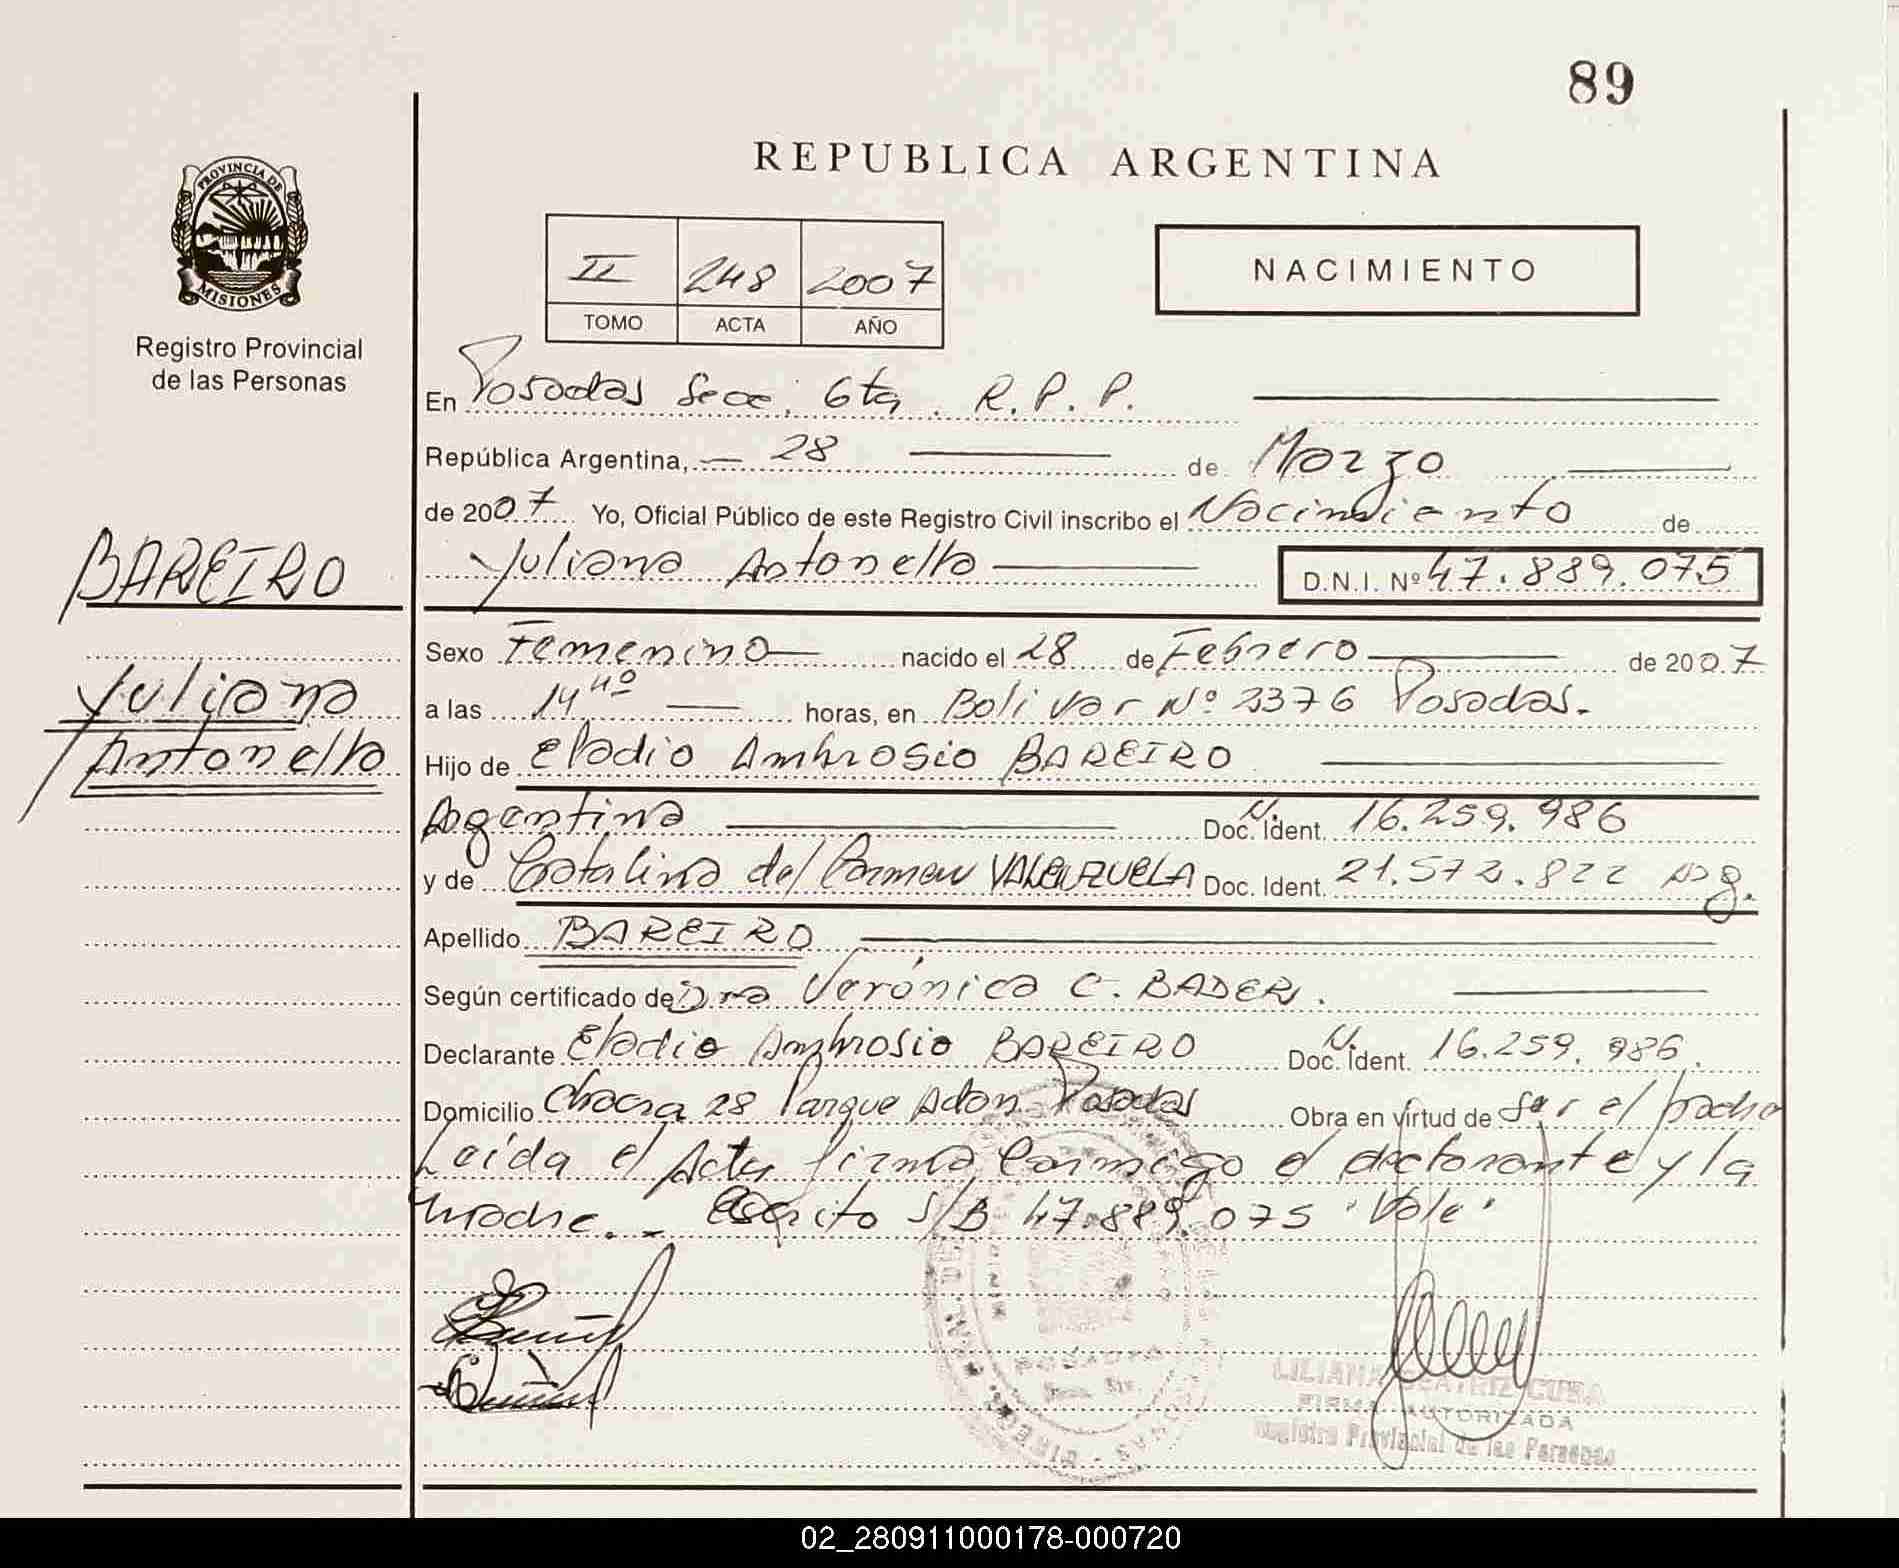 89
REPUBLICA ARGENTINA
PROVINCIA DE
MISIONES
Registro Provincial
de las Personas
II 248 2007
TOMO ACTA AÑO
NACIMIENTO
En Posadas Secc. 6ta. R.P.P.
República Argentina, 28 de Marzo
de 2007 Yo, Oficial Público de este Registro Civil inscribo el Nacimiento de
Yuliana Antonella D.N.I. Nº 47.889.075
BAREIRO
Yuliana
Antonella
Sexo Femenino nacido el 28 de Febrero de 2007
a las 14 40 horas, en Bolivar Nº 2376 Posadas.
Hijo de Eladio Ambrosio BAREIRO
Argentina Doc. N. Ident. 16.259.986
y de Catalina del Carmen VALENZUELA Doc. Ident. 21.572.822 Arg.
Apellido BAREIRO
Según certificado de Dra Verónica C. BADER.
Declarante Eladio Ambrosio BAREIRO Doc. N. Ident. 16.259.986.
Domicilio Chacra 28 Parque Adam Posadas Obra en virtud de ser el padre
Leída el Acta firma conmigo el declarante y la
madre.- Escrito S/B 47.889.075 "Vale"
POSADAS
LILIANA BEATRIZ CUBA
FIRMA AUTORIZADA
Registro Provincial de las Personas
02_280911000178-000720